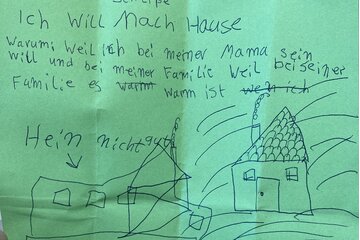 Ich Will Nach Hause
Warum: Weil ich bei meiner Mama sein
will und bei meiner Familie Weil bei seiner
Familie es warm warm ist wen ich
Hein nicht gut